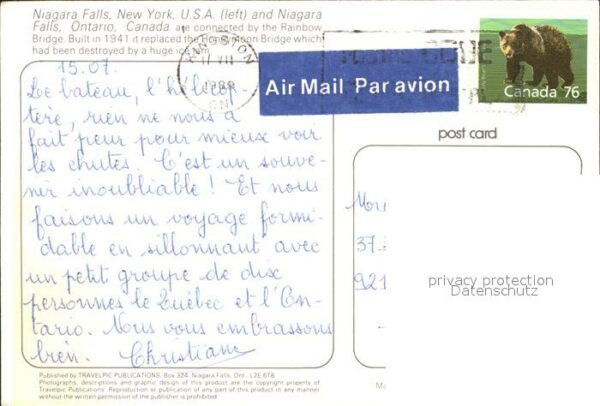 Niagara Falls, New York, U.S.A. (left) and Niagara
Falls, Ontario, Canada are connected by the Rainbow
Bridge. Built in 1941 it replaced the Honeymoon Bridge which
had been destroyed by a huge ice jam.
KINGSTON
17 VII
1989
ON
POSTAL CODE
Air Mail Par avion
Canada 76
post card
15.07.
Le bateau, l'hélicop-
tère, rien ne nous a
fait peur pour mieux voir
les chutes. C'est un souve-
nir inoubliable ! Et nous
faisons un voyage formi-
dable en sillonnant avec
un petit groupe de dix
personnes le Québec et l'On-
tario. Nous vous embrassons
bien. Christiane
37
921
privacy protection
Datenschutz
Published by TRAVELPIC PUBLICATIONS, Box 324, Niagara Falls, Ont., L2E 6T8
Photographs, descriptions and graphic design of this product are the copyright property of
Travelpic Publications. Reproduction or publication of any part of this product in any manner
without the written permission of the publisher is prohibited.